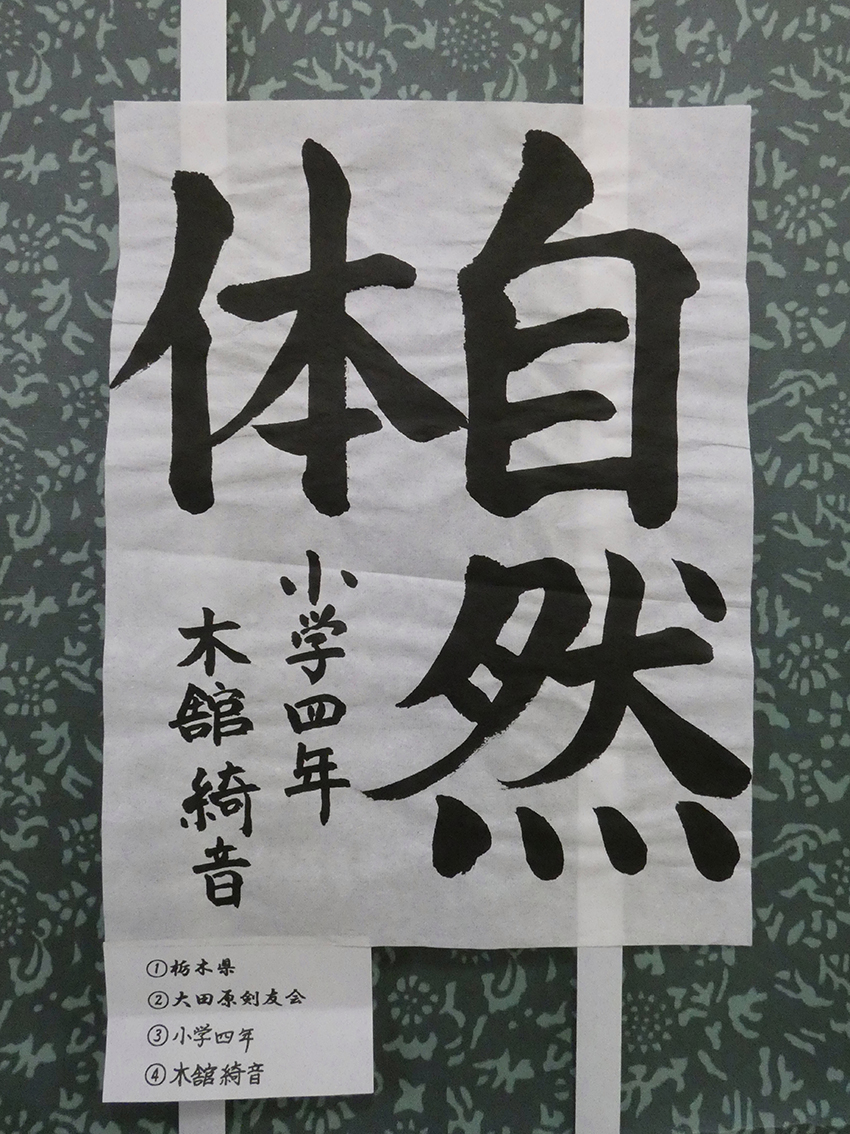 自然
体
小学四年
木舘綺音
①栃木県
②大田原剣友会
③小学四年
④木舘綺音